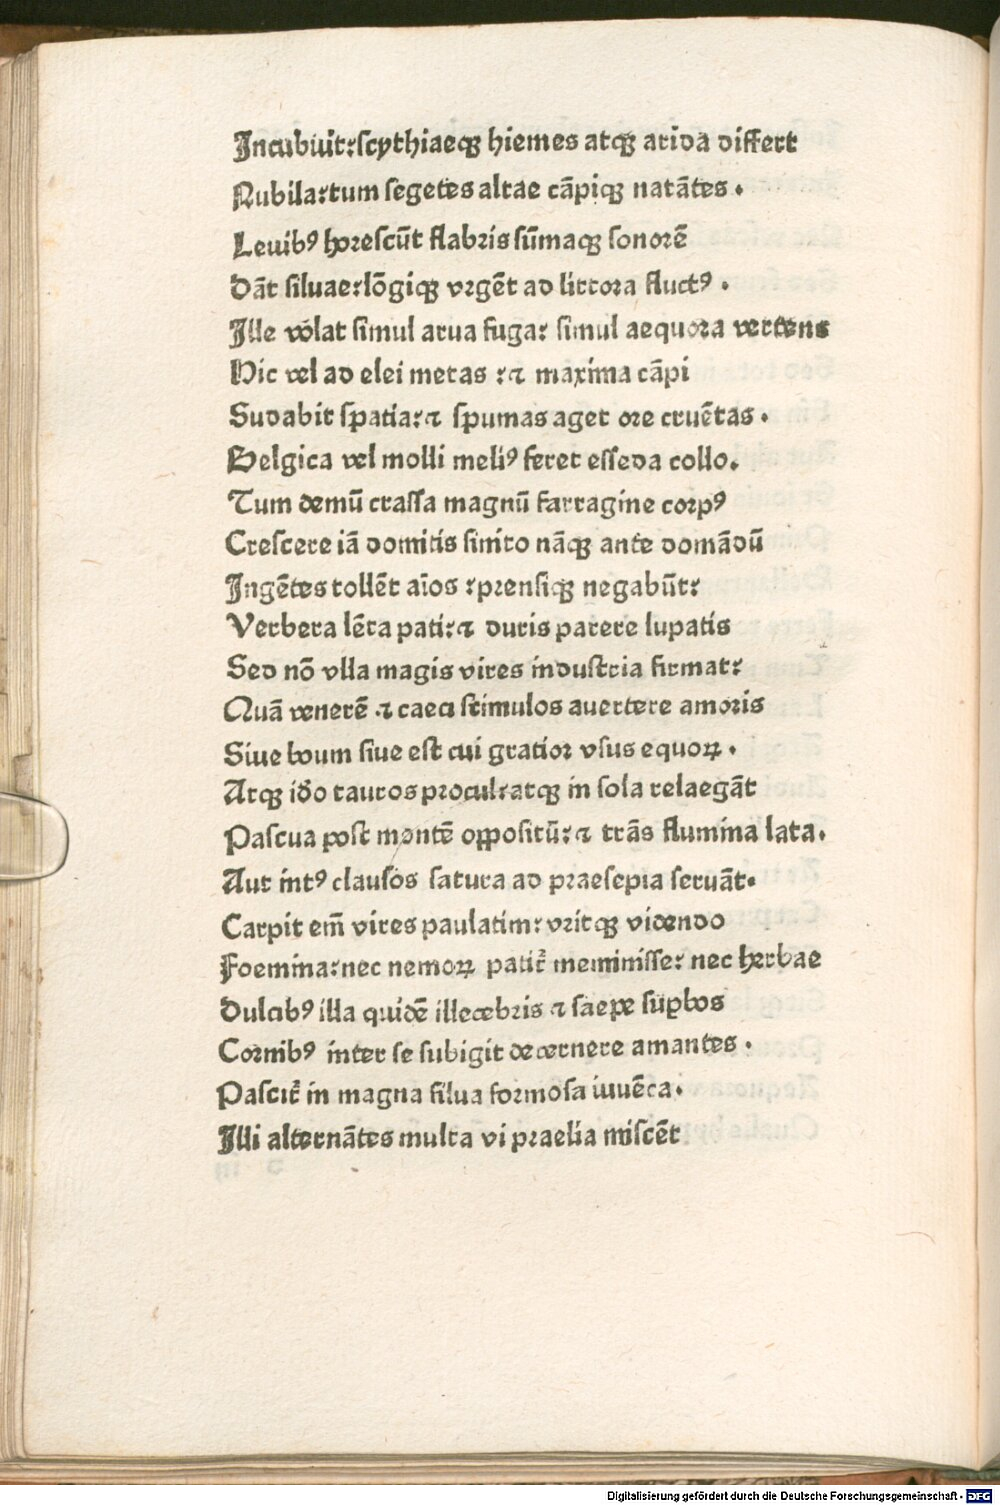 Incubuit:scythiaeqꝫ hiemes atqꝫ arida differt
Nubila:tum segetes altae cãpiqꝫ natãtes.
Levibꝰ horescũt flabris sũmaqꝫ sonorẽ
Dãt siluae:lõgiqꝫ vrgẽt ad littora fluctꝰ.
Ille volat simul arua fuga: simul aequora vertens
Hic vel ad elei metas :⁊ maxima cãpi
Sudabit spatia:⁊ spumas aget ore cruẽtas.
Belgica vel molli meliꝰ feret esseda collo.
Tum demũ crassa magnũ farragine corpꝰ
Crescere iã domitis sinito nãqꝫ ante domãdũ
Ingẽtes tollẽt aĩos :prensiqꝫ negabũt:
Verbera lẽta pati:⁊ duris parere lupatis
Sed nõ vlla magis vires industria firmat:
Quã venerẽ ⁊ caeci stimulos auertere amoris
Siue boum siue est cui gratior vsus equoꝝ.
Atqꝫ iđo tauros procul:atqꝫ in sola relaegãt
Pascua post montẽ oppositũ:⁊ trãs flumina lata.
Aut intꝰ clausos satura ad praesepia seruãt.
Carpit em̃ vires paulatim:vritqꝫ videndo
Foemina:nec nemoꝝ patit᷑ meminisse: nec herbae
Dulcibꝰ illa quidẽ illecebris ⁊ saepe suꝑbos
Cornibꝰ inter se subigit decernere amantes.
Pascit᷑ in magna silua formosa iuuẽca.
Illi alternãtes multa vi praelia miscẽt
Digitalisierung gefördert durch die Deutsche Forschungsgemeinschaft - DFG